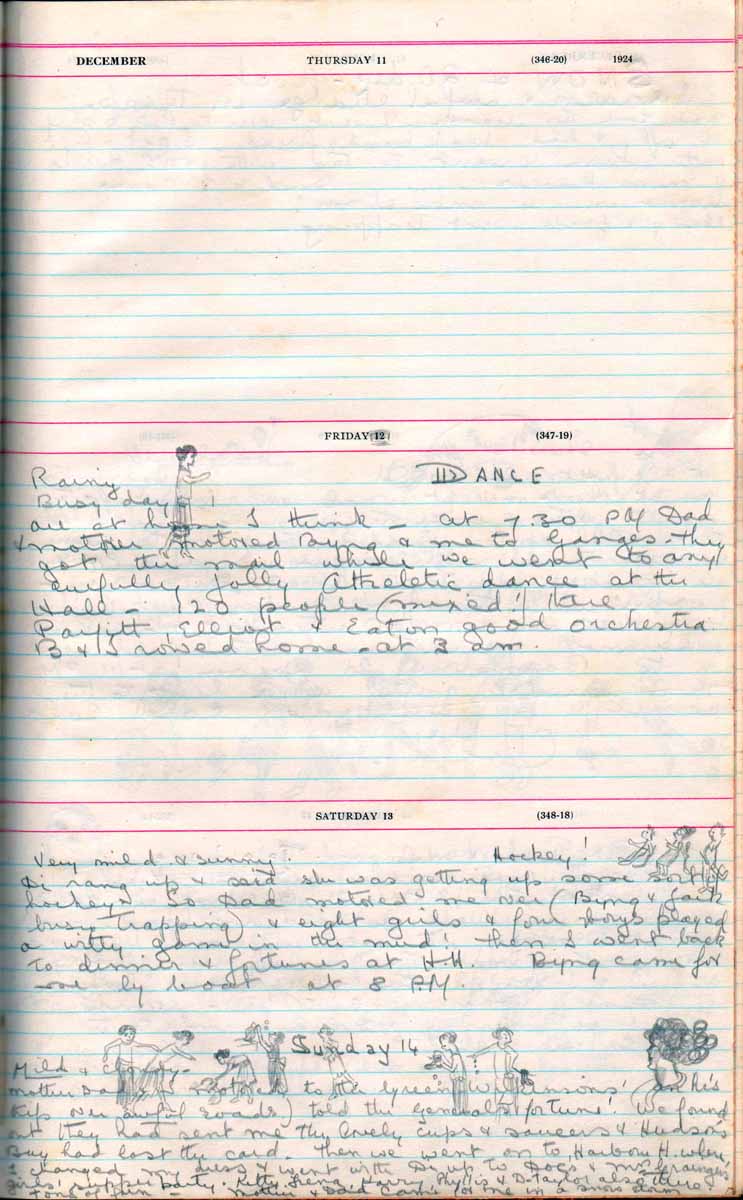 DECEMBER THURSDAY 11 (346-20) 1924
FRIDAY 12 (347-19)
Rainy DANCE
Busy day!
all at home I think – at 7.30 PM Dad
& motored Byng & me to Ganges. They
got the mail while we went to any
awfully jolly Atheletic dance at the
Hall – 120 people (mixed!)
Elliot & Eaton good orchestra
B & I rowed home – at 3 am.
SATURDAY 13 (348-18)
Very mild & sunny. Hockey!
Di rang up & said she was getting up some sort of
hockey. So Dad motored me over (Byng & Jack
busy trapping) & eight girls & four boys played
a witty game in the mud! then I went back
to dinner & fortunes at H.H. Byng came for
me by boat at 8 P.M.
Sunday 14
Mild &
mother Dad & I motored to the Wilkinsons'
over awful roads) told the Generals fortune! We found
out they had sent me the lovely cups & saucers & Hudson's
Bay had lost the card. Then we went on to Harbour H. where
I changed my dress & went with Di up to Docs & Mrs
girls' supper party. Kitty, Phyllis & D Taylor also there
Tons of fun – Mother & Dad came for me in